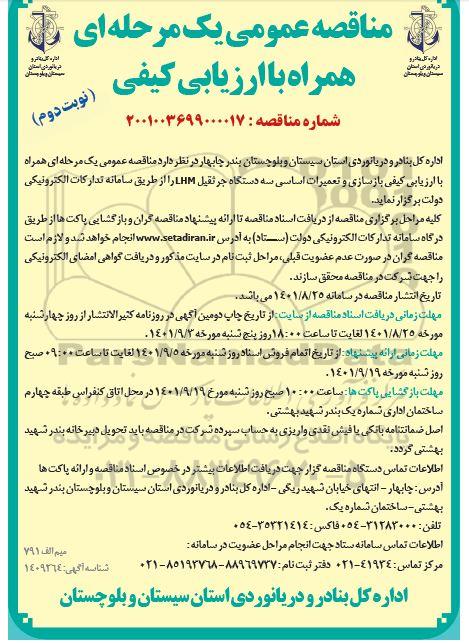 مناقصه عمومی یک مرحله ای
همراه با ارزیابی کیفی
اداره کل بنادر و
دریانوردی استان
سیستان و بلوچستان
اداره کل بنادر و
دریانوردی استان
سیستان و بلوچستان
(نوبت دوم)
شماره مناقصه : ۲۰۰۱۰۰۳۶۹۹۰۰۰۰۱۷
اداره کل بنادر و دریانوردی استان سیستان و بلوچستان بندر چابهار در نظر دارد مناقصه عمومی یک مرحله ای همراه
با ارزیابی کیفی بازسازی و تعمیرات اساسی سه دستگاه جرثقیل LHM را از طریق سامانه تدارکات الکترونیکی
دولت برگزار نماید.
کلیه مراحل برگزاری مناقصه از دریافت اسناد مناقصه تا ارائه پیشنهاد مناقصه گران و بازگشایی پاکت ها از طریق
درگاه سامانه تدارکات الکترونیکی دولت (ستاد) به آدرس www.setadiran.ir انجام خواهد شد و لازم است
مناقصه گران در صورت عدم عضویت قبلی، مراحل ثبت نام در سایت مذکور و دریافت گواهی امضای الکترونیکی
را جهت شرکت در مناقصه محقق سازند.
تاریخ انتشار مناقصه در سامانه ۱۴۰۱/۸/۲۵ می باشد.
مهلت زمانی دریافت اسناد مناقصه از سایت: از تاریخ چاپ دومین آگهی در روزنامه کثیرالانتشار از روز چهارشنبه
مورخه ۱۴۰۱/۸/۲۵ لغایت تا ساعت ۱۸:۰۰ روز پنج شنبه مورخه ۱۴۰۱/۹/۳.
مهلت زمانی ارائه پیشنهاد: از تاریخ اتمام فروش اسناد روز شنبه مورخه ۱۴۰۱/۹/۵ لغایت تا ساعت ۰۹:۰۰ صبح
روز شنبه مورخه ۱۴۰۱/۹/۱۹.
مهلت بازگشایی پاکت ها: ساعت ۱۰:۰۰ صبح روز شنبه مورخ ۱۴۰۱/۹/۱۹ در محل اتاق کنفرانس طبقه چهارم
ساختمان اداری شماره یک بندر شهید بهشتی.
اصل ضمانتنامه بانکی یا فیش نقدی واریزی به حساب سپرده شرکت در مناقصه باید تحویل دبیرخانه بندر شهید
بهشتی گردد.
اطلاعات تماس دستگاه مناقصه گزار جهت دریافت اطلاعات بیشتر در خصوص اسناد مناقصه و ارائه پاکت ها
آدرس: چابهار - انتهای خیابان شهید ریگی - اداره کل بنادر و دریانوردی استان سیستان و بلوچستان بندر شهید
بهشتی - ساختمان شماره یک.
تلفن: ۳۱۲۸۳۰۰۰-۰۵۴ فاکس: ۳۵۳۲۱۴۱۴-۰۵۴
اطلاعات تماس سامانه ستاد جهت انجام مراحل عضویت در سامانه:
میم الف ۷۹۱
مرکز تماس: ۴۱۹۳۴-۰۲۱ دفتر ثبت نام: ۸۸۹۶۹۷۳۷-۸۵۱۹۳۷۶۸-۰۲۱
شناسه آگهی: ۱۴۰۹۲۶۴
اداره کل بنادر و دریانوردی استان سیستان و بلوچستان
ParsNamadData
۰۲۱-۸۸۳۴۹۶۷۰-۵